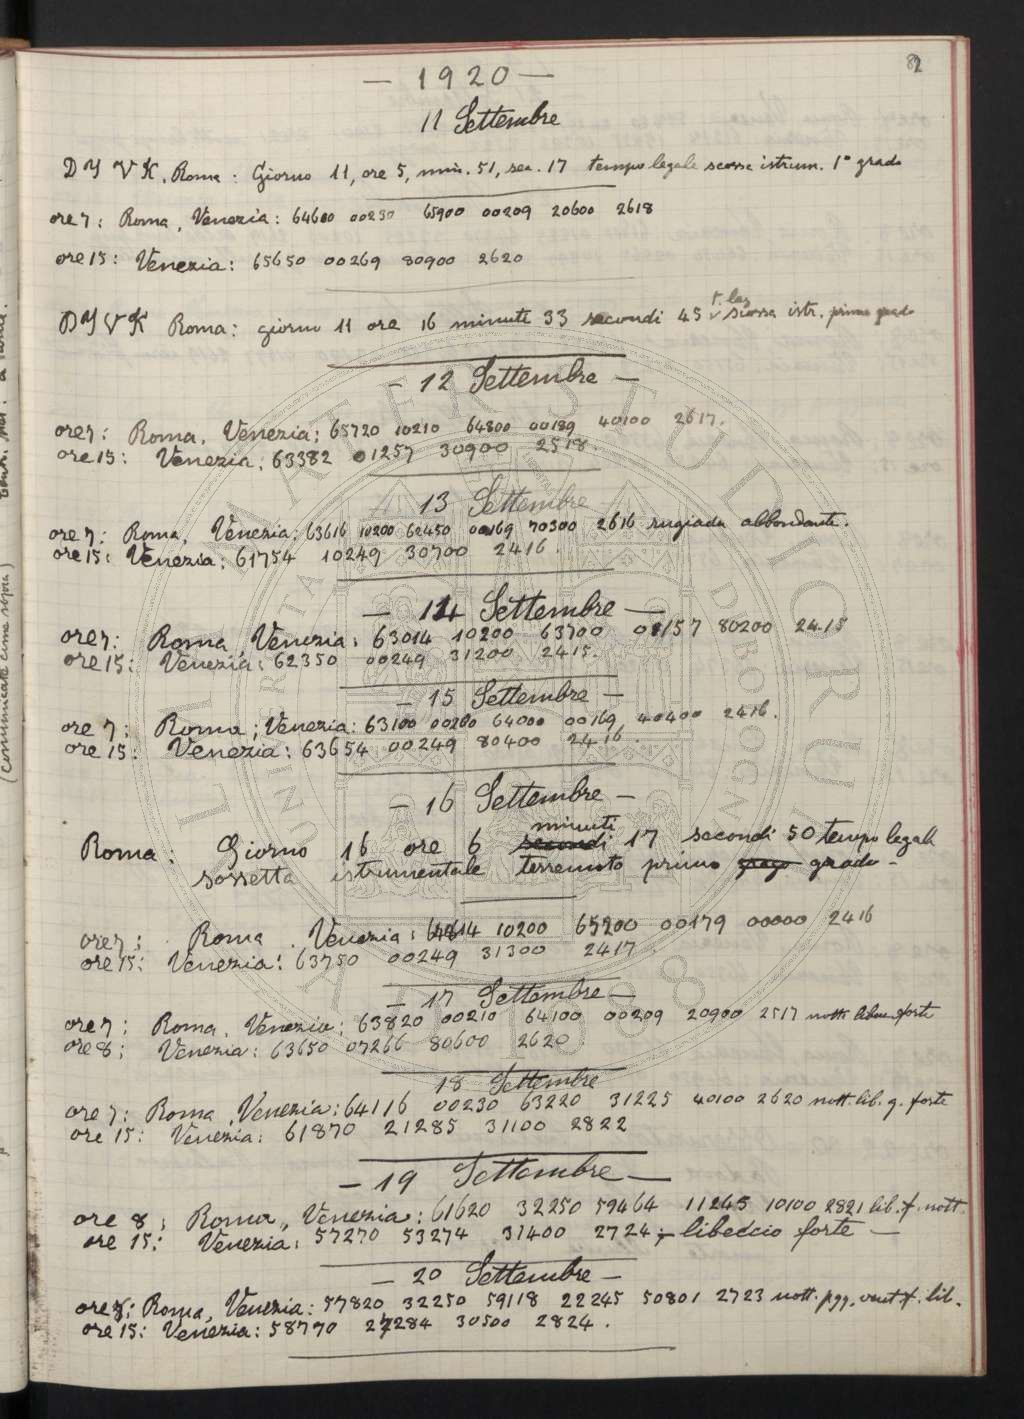 82
— 1920 —
11 Settembre
Roma: Giorno 11, ore 5, min. 51, sec. 17 tempo legale scossa istrum. 1° grado
ore 7: Roma, Venezia: 64600 00230 65900 00209 20600 2618
ore 15: Venezia: 65650 00269 80900 2620
Roma: giorno 11 ore 16 minuti 33 secondi 45 scossa istr. primo grado
— 12 Settembre —
ore 7: Roma, Venezia: 65720 10210 64800 00189 40100 2617.
ore 15: Venezia: 63382 01257 30900 2518.
13 Settembre
ore 7: Roma, Venezia: 63616 10200 62450 00169 70300 2616 rugiada abbondante.
ore 15: Venezia: 61754 10249 30700 2416.
— 14 Settembre —
ore 7: Roma, Venezia: 63014 10200 63700 00157 80200 2415
ore 15: Venezia: 62350 00249 31200 2415.
— 15 Settembre —
ore 7: Roma; Venezia: 63100 00200 64000 00169, 40400 2416.
ore 15: Venezia: 63654 00249 80400 2416.
— 16 Settembre —
minuti
Roma: Giorno 16 ore 6 secondi 17 secondi 50 tempo legale
istrumentale terremoto primo grado —
ore 7: Roma, Venezia: 10200 65200 00179 00000 2416
ore 15: Venezia: 63750 00249 31300 2417.
— 17 Settembre —
ore 7: Roma, Venezia: 63820 00210 64100 00209 20900 2517 forte
ore 8: Venezia: 63650 07266 80600 2620
18 Settembre
ore 7: Roma, Venezia: 64116 00230 63220 31225 40100 2620 nott. lib. g. forte
ore 15: Venezia: 61870 21285 31100 2822
— 19 Settembre —
ore 8: Roma, Venezia: 61620 32250 59464 11245 10100 2821 lib. f. nott.
ore 15: Venezia: 57270 53274 31400 2724; — libeccio forte —
— 20 Settembre —
Roma, Venezia: 57820 32250 59118 22245 50801 2723 nott. pgg. vent f. lib.
ore 15: Venezia: 58770 27284 30500 2824.
(comunicate come sopra)
ALMA MATER STUDIORUM
UNIVERSITÀ DI BOLOGNA
A.D. 1088